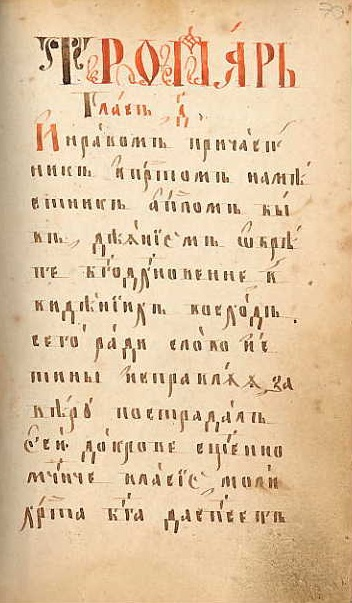 Тропа́рь
Гла́съ, д҃,
И нравомъ прича́ст
никъ и҆ прⷭ҇томъ намѣ́
стникъ а҆пⷭ҇ломъ бы́
въ, дѣ́янїемъ ѡ҆брѣ́
те бг҃одх҃новенне в
видѣ́нїихъ восхо́дъ.
сего̀ ра́ди сло́во и҆́с
тины и҆справлѧ́ѧ, за
вѣ́рꙋ пострада́лъ
є҆сѝ до́крове сщ҃енно
мч҃нче вла́сїе, молѝ
хрⷭ҇та бг҃а да спасетъ